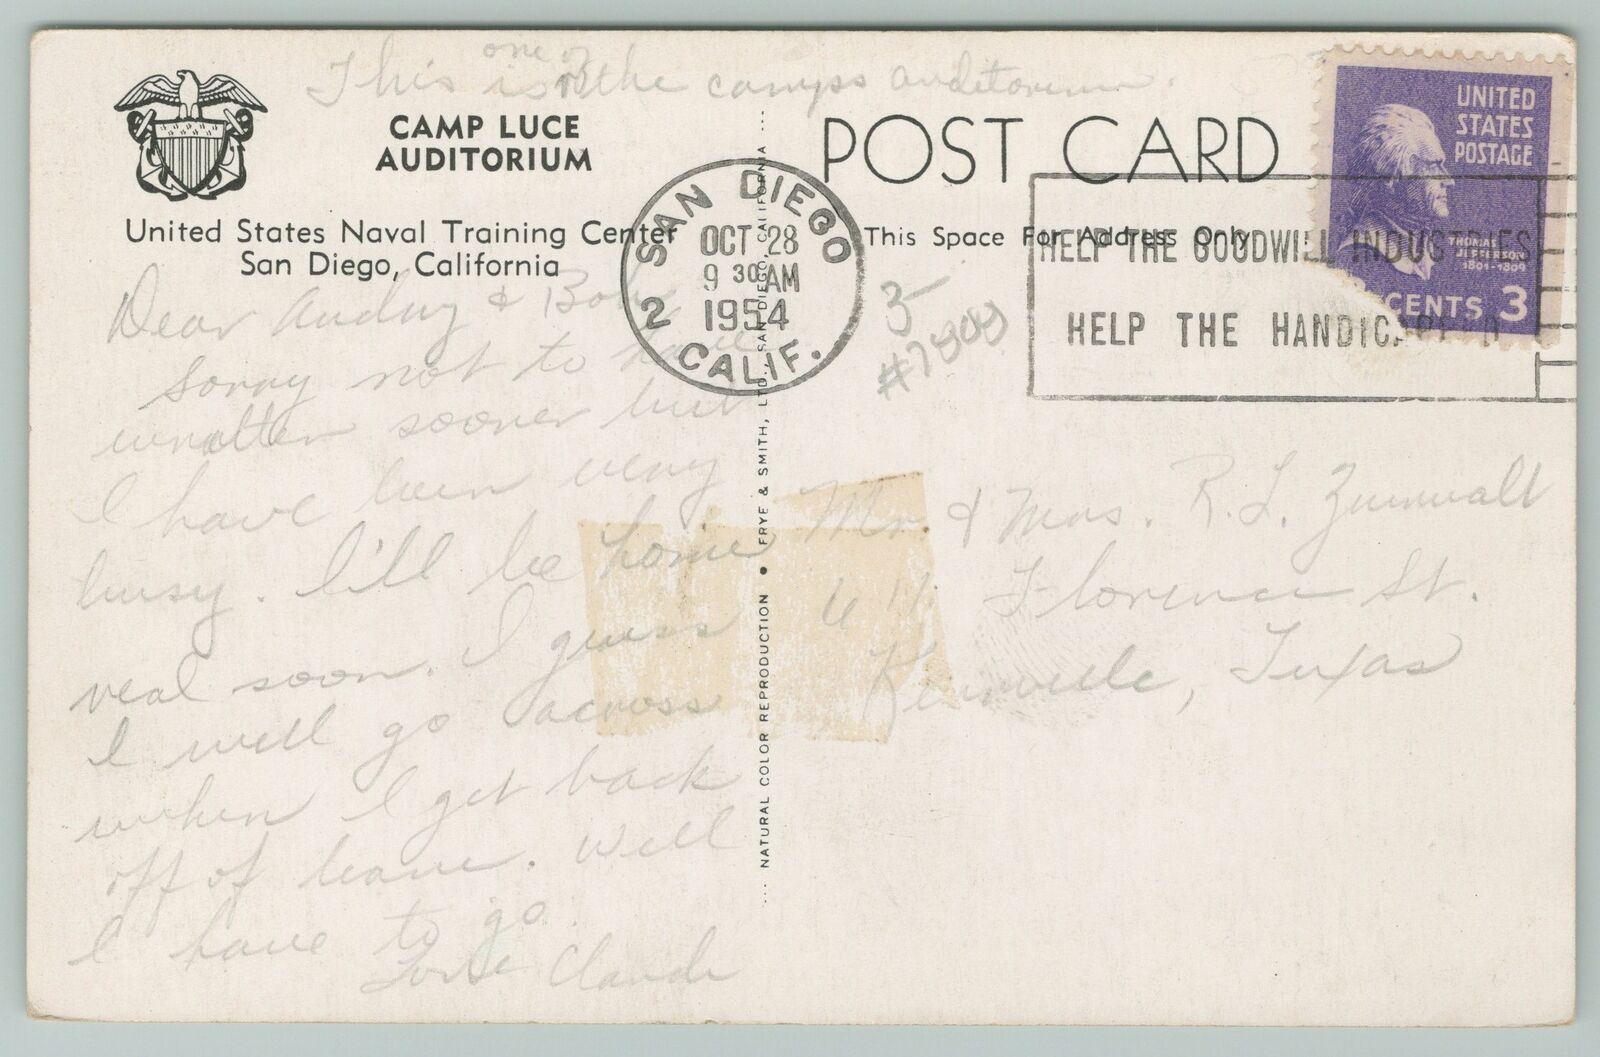 one of
This is the camps auditorium.
CAMP LUCE
AUDITORIUM
United States Naval Training Center
San Diego, California
Dear Audrey & Bob
Sorry not to have
written sooner but
I have been very
busy. I'll be home
real soon. I guess
I will go across
when I get back
off of leave. Well
I have to go.
Love Claude
SAN DIEGO
OCT 28
9 30 AM
1954
2
CALIF.
NATURAL COLOR REPRODUCTION • FRYE & SMITH, LTD., SAN DIEGO, CALIFORNIA
POST CARD
This Space For Address Only
3-
HELP THE GOODWILL INDUSTRIES
HELP THE HANDICAPPED
UNITED
STATES
POSTAGE
THOMAS
JEFFERSON
1801-1809
CENTS 3
Mr. & Mrs. R. L. Zumwalt
611 Florence St.
Kerrville, Texas